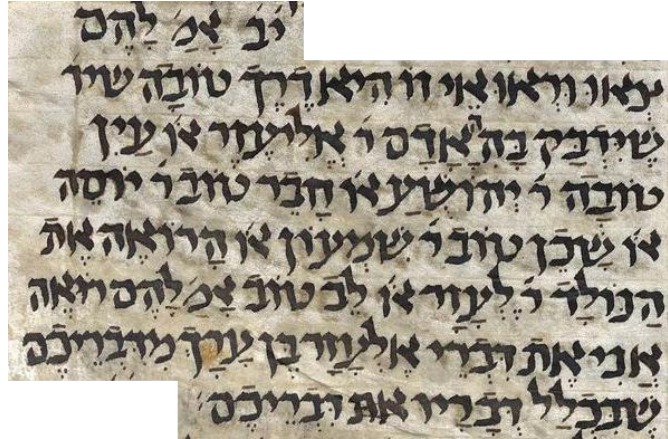 יב אמ' להם
צאו וראו אי זו היא דרך טובה שיו
שידבק בה האדם ר' אליעזר או' עין
טובה ר' יהושע או' חבר טוב ר' יוסה
או' שכן טוב ר' שמעון או' הרואה את
הנולד ר' לעזר או' לב טוב אמ' להם רואה
אני את דברי אלעזר בן ערך מדבריכם
שבכלל דבריו את דבריכם